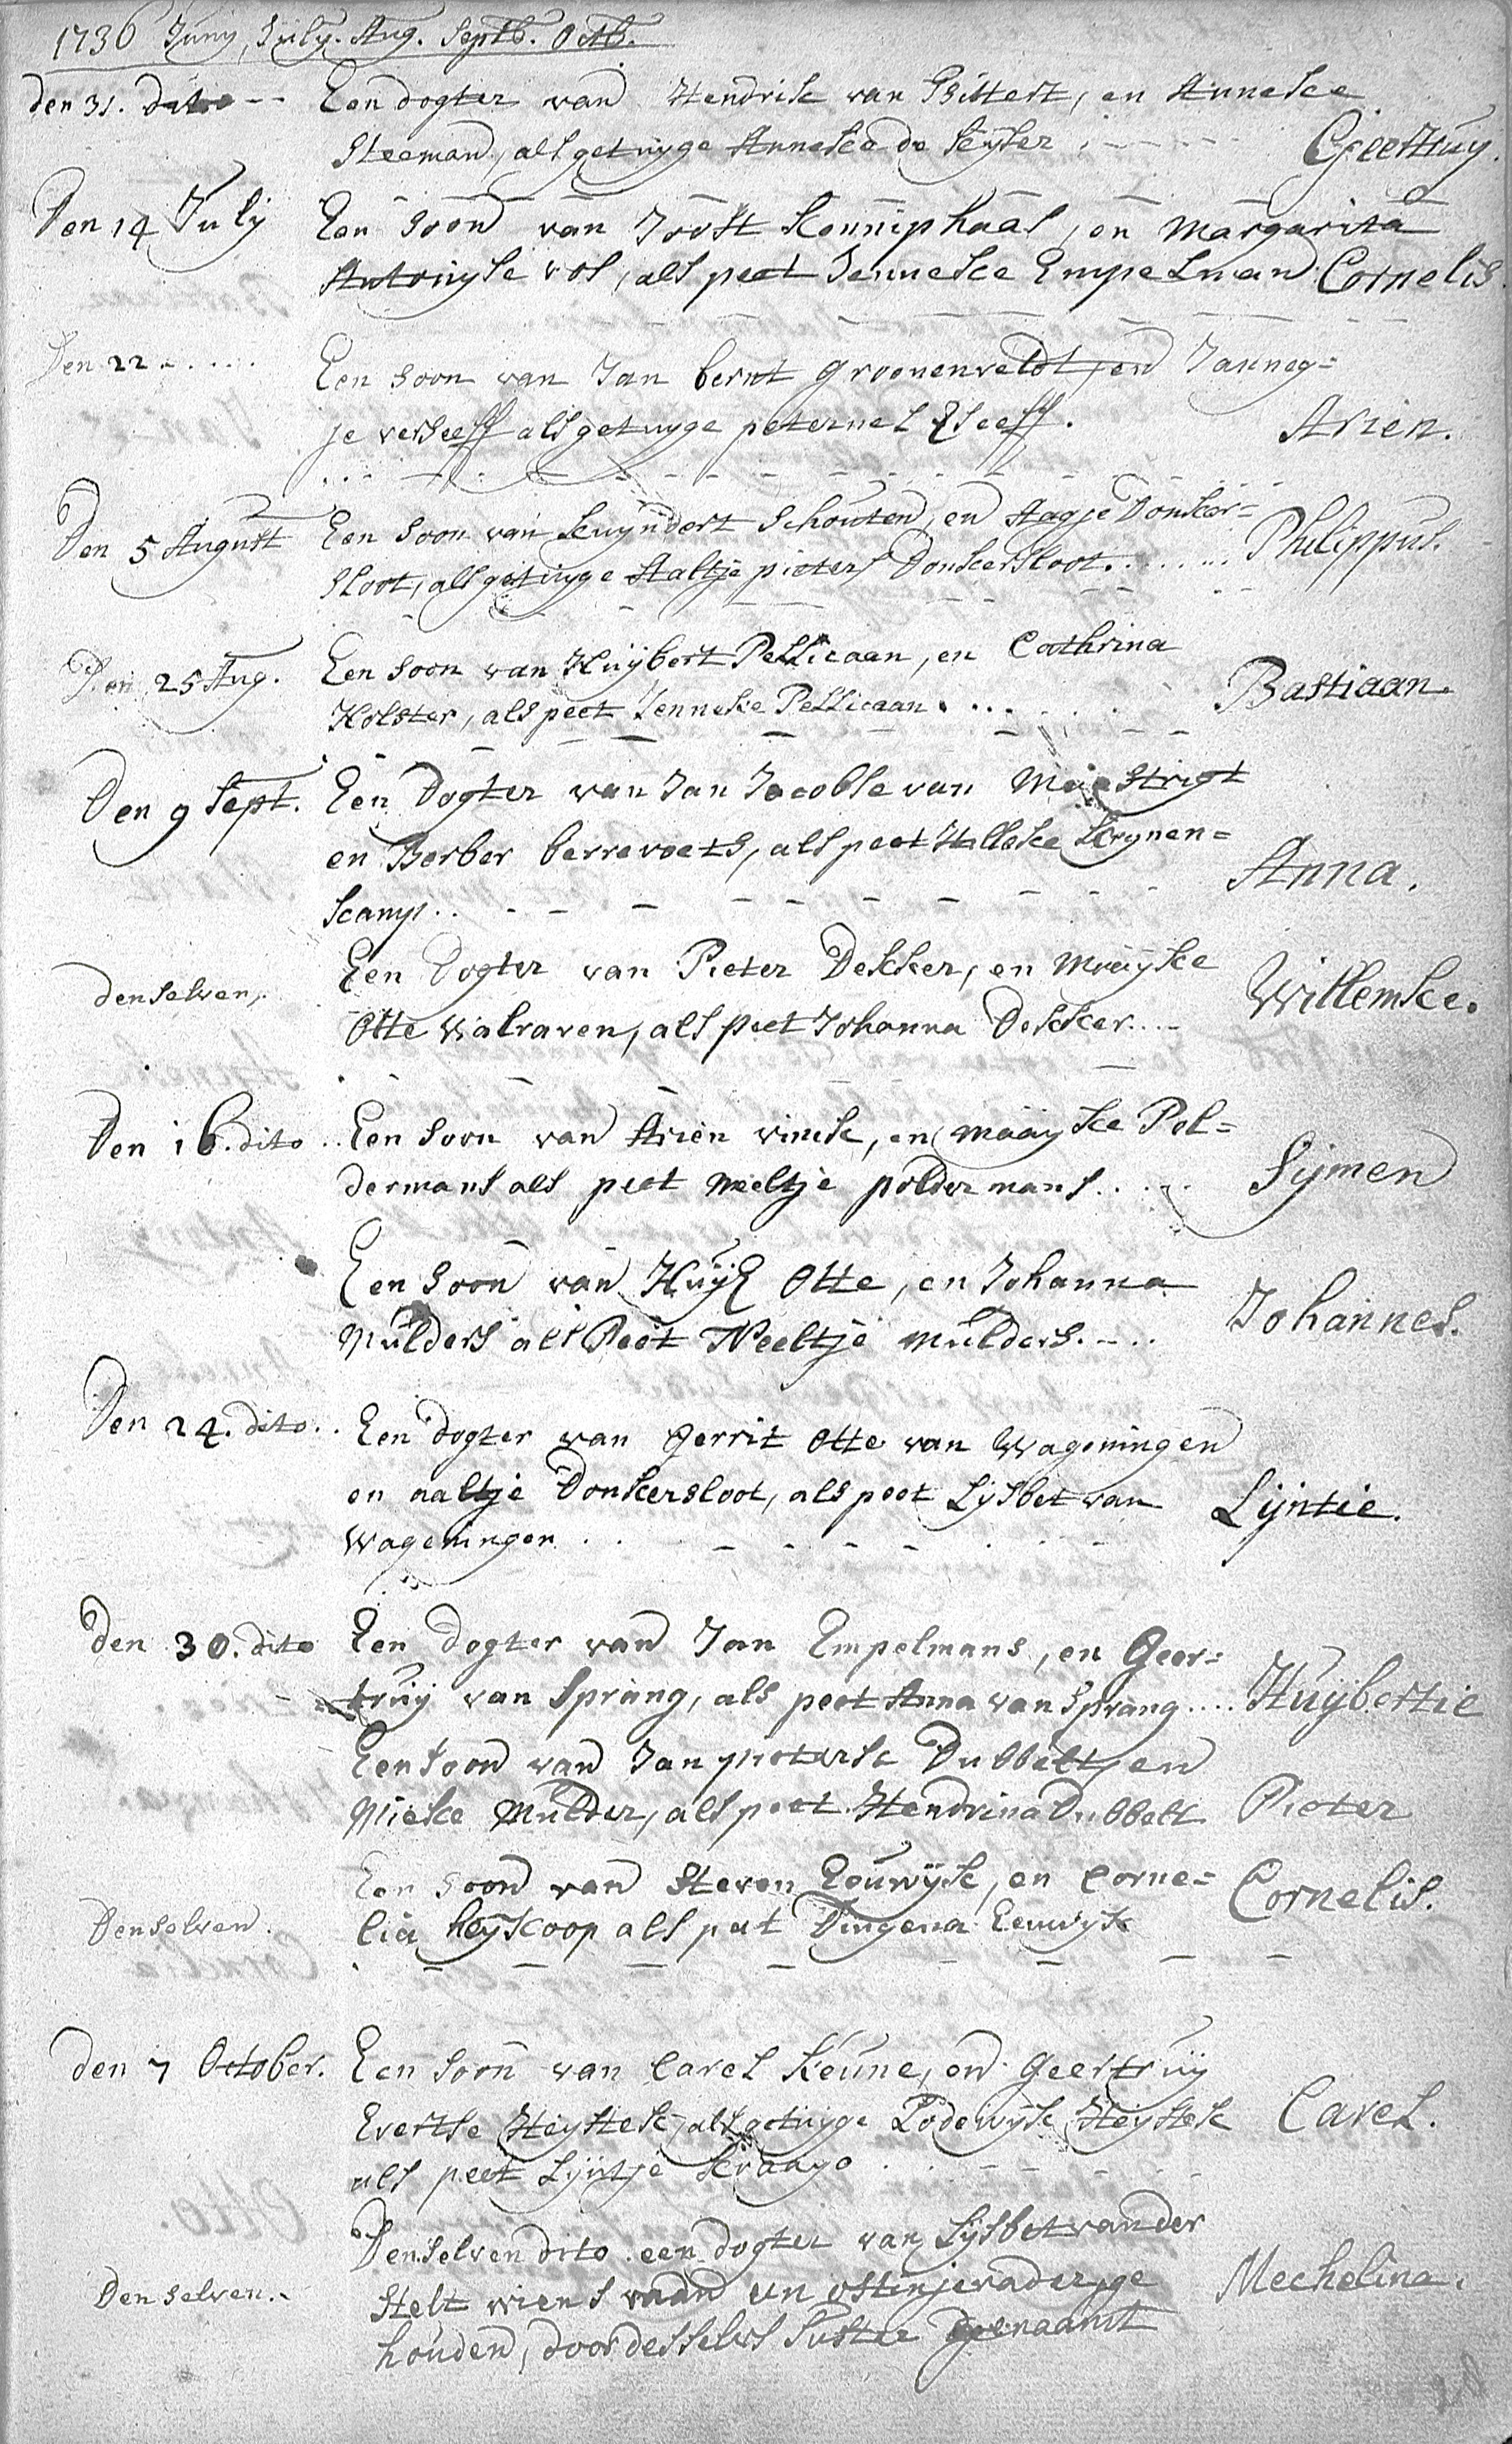 1736 Juny, July. Aug. Septb. Octb.
den 31. dito -- Een dogter van Hendrik van Bittert, en Anneke
Steeman, als getuyge Anneke de Keyser . - - - - Geertruy.
Den 14 July Een soon van Joost Konniphaas, en Margarita
Antonyse vos, als peet Jenneke Empelman Cornelis.
Den 22 . . . . . . Een soon van Jan bernt groenenveldt, en Janneg=
je verseeff als getuyge peternel Eseeff. Arien.
Den 5 August Een soon van Leuyndert Schouten, en Aagje Donker=
sloot, als getuyge Aaltje pieters Donkersloot. . . . . . . . Philippus.
Den 25 Aug. Een soon van Huijbert Pellicaan, en Cathrina
Holster, als peet Jenneke Pellicaan . . . . Bastiaan.
Den 9 Sept. Een Dogter van Jan Jacobse van Maestrigt
en Berber berrevoets, als peet Hilleke Krynen=
kamp . . Anna.
denselven, Een Dogter van Pieter Dekker, en Maeyke
Otte Walraven, als peet Johanna Dekker . . . Willemke.
Den 16. dito . . Een soon van Arien vinck, en Maayke Pol=
dermans als peet Neeltje poldermans . . . . . Sijmen
Een soon van Huijb Otte, en Johanna
Mulders als Peet Neeltje Mulders. - . . Johannes.
Den 24. dito. . Een dogter van Gerrit Otte van Wageningen
en aaltje Donkersloot, als peet Lysbet van Lijntie.
Wageningen . .
Den 30. dito Een dogter van Jan Empelmans, en Geer=
truy van Sprang, als peet Anna van Sprang . . . . Huijbertie
Een soon van Jan pieterse Dubbelt, en
Mieke Mulder, als peet Hendrina Dubbelt Pieter
Een soon van Steven Eeuwijk, en Corne= Cornelis.
Denselven. lia heyskoop als peet Dingena Eeuwijk
den 7 October. Een soon van Carel Keune, en Geertruij
Evertse Heystek, als getuyge Lodewyk Heystek Carel.
als peet Lijntje Kraayo
Denselven dito een dogter van Lysbet van der
Denselven . - Stelt wiens vaader ge Mechelina.
houden, door desselvs Suster genaamt